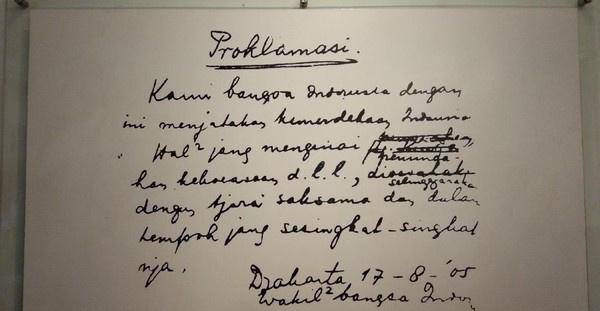 Proklamasi.
Kami bangsa Indonesia dengan
ini menjatakan kemerdekaan Indonesia
Hal² jang mengenai
peminda-
han kekoeasaan d.l.l., dioesahak
selenggaraka
dengan tjara saksama dan dalam
tempoh jang sesingkat-singkat
nja.
Djakarta, 17-8-'05
Wakil² bangsa Indon